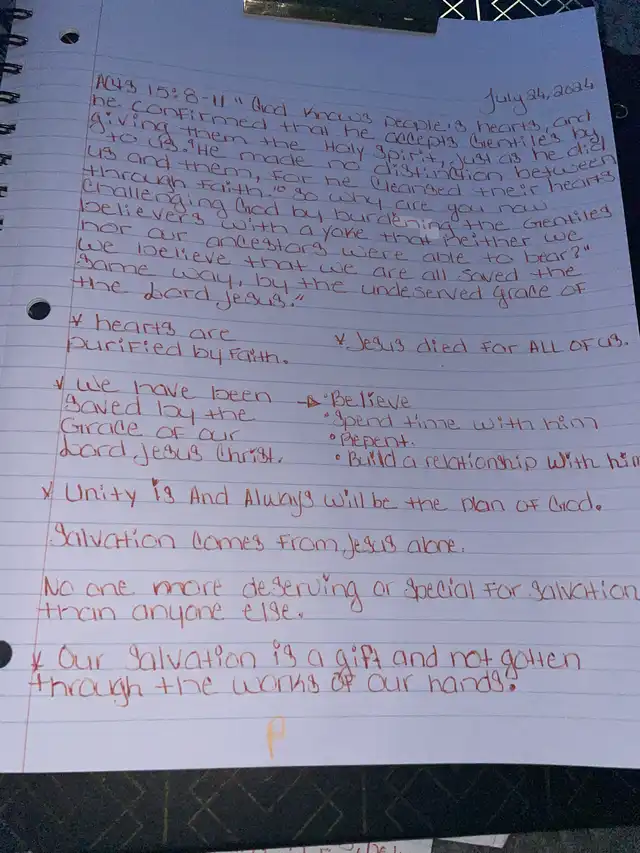 July 24, 2024
Acts 15:8-11 "God knows people's hearts, and
he confirmed that he accepts Gentiles by
giving them the Holy Spirit, just as he did
to us. "He made no distinction between
us and them, for he cleansed their hearts
through faith." So why are you now
challenging God by burdening the Gentiles
believers with a yoke that neither we
nor our ancestors were able to bear?"
We believe that we are all saved the
same way, by the undeserved grace of
the Lord Jesus."
* hearts are
purified by faith.
* Jesus died for ALL OF US.
* We have been
saved by the
Grace of our
Lord Jesus Christ.
→ • Believe
• Spend time with him
• Repent.
• Build a relationship with him
* Unity is And Always will be the plan of God.
Salvation comes from Jesus alone.
No one more deserving or special for salvation
than anyone else.
* Our salvation is a gift and not gotten
through the works of our hands.
P